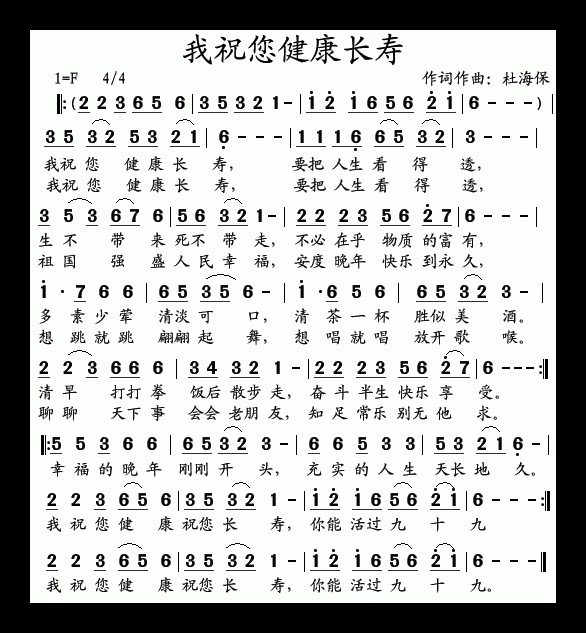 我祝您健康长寿
1=F 4/4 作词作曲：杜海保
‖:(2 2 3 6 5 6 | 3 5 3 2 1 - | 1 2 1 6 5 6 2 1 | 6 - - - ) |
3 5 3 2 5 3 2 1 | 6 - - - | 1 1 1 6 6 5 3 2 | 3 - - - |
我祝 您 健 康 长 寿， 要把 人生 看 得 透，
我祝 您 健 康 长 寿， 要把 人生 看 得 透，
3 5 3 6 7 6 | 5 6 3 2 1 - | 2 2 2 3 5 6 2 7 | 6 - - - |
生 不 带 来 死不 带 走， 不必 在乎 物质 的富 有，
祖 国 强 盛 人 民 幸 福， 安度 晚年 快乐 到永 久，
1 · 7 6 6 | 6 5 3 5 6 - | 1 · 6 5 6 | 6 5 3 2 3 - |
多 素 少 荤 清淡 可 口， 清 茶 一 杯 胜似 美 酒。
想 跳 就 跳 翩翩 起 舞， 想 唱 就 唱 放开 歌 喉。
2 2 3 6 6 6 | 3 4 3 2 1 - | 2 2 2 3 5 6 2 7 | 6 - - - :‖
清 早 打打 拳 饭后 散步 走， 奋 斗 半生 快乐 享 受。
聊 聊 天下 事 会会 老朋 友， 知 足 常乐 别无 他 求。
‖: 5 5 3 6 6 | 6 5 3 2 3 - | 6 6 5 3 3 | 5 3 2 1 6 - |
幸 福 的 晚 年 刚刚 开 头， 充 实 的 人 生 天长 地 久。
2 2 3 6 5 6 | 3 5 3 2 1 - | 1 2 1 6 5 6 2 1 | 6 - - :‖
我 祝 您 健 康 祝您 长 寿， 你能 活过 九 十 九
2 2 3 6 5 6 | 3 5 3 2 1 - | 1 2 1 6 5 6 2 1 | 6 - - ‖
我 祝 您 健 康 祝您 长 寿， 你能 活过 九 十 九。